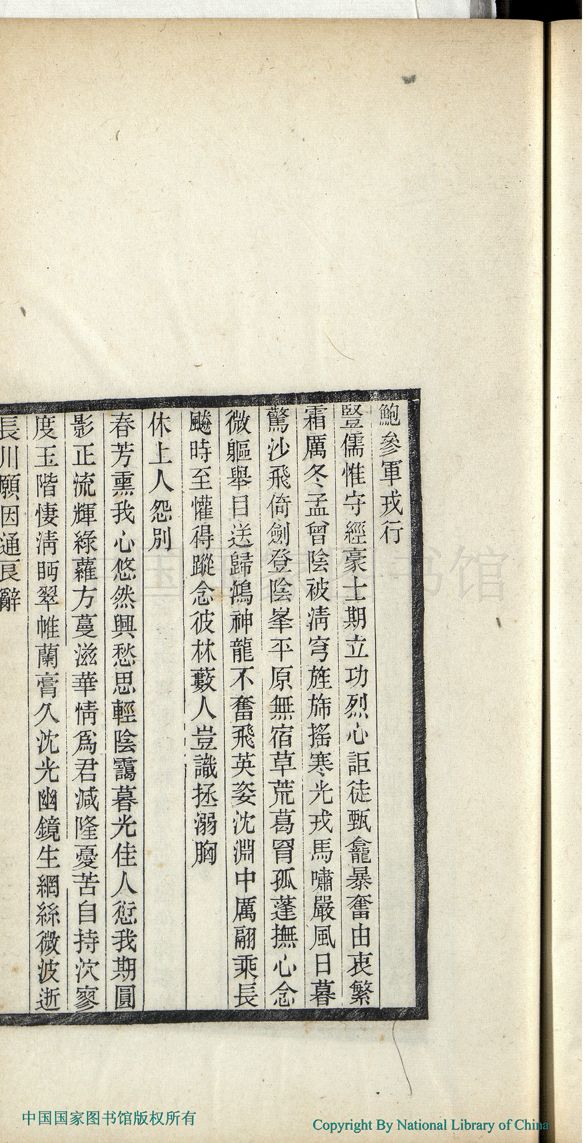 鮑參軍戎行
豎儒惟守經豪士期立功烈心詎徒甄龕暴奮由衷繁
霜厲冬孟曾陰被淸穹旌斾搖寒光戎馬嘯嚴風日暮
驚沙飛倚劍登陰峯平原無宿草荒葛罥孤蓬撫心念
微軀舉目送歸鴻神龍不奮飛英姿沈淵中厲翮乘長
飈時至懽得蹤念彼林藪人豈識拯溺胸
休上人怨別
春芳熏我心悠然興愁思輕陰靄暮光佳人愆我期圓
影正流輝綠蘿方蔓滋華情爲君減隆憂苦自持泬寥
度玉階悽淸眄翠帷蘭膏久沈光幽鏡生網絲微波逝
長川願因通良辭
中国国家图书馆版权所有
Copyright By National Library of China